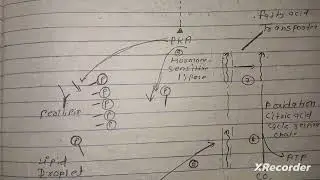 fatty acid
transporter
PKA
Hormone
sensitive
lipase
P
P
P
P
P
P
P
Perilipin
β oxidation
citric acid
cycle respira
chain
Lipid
Droplet
ATP
CO
XRecorder